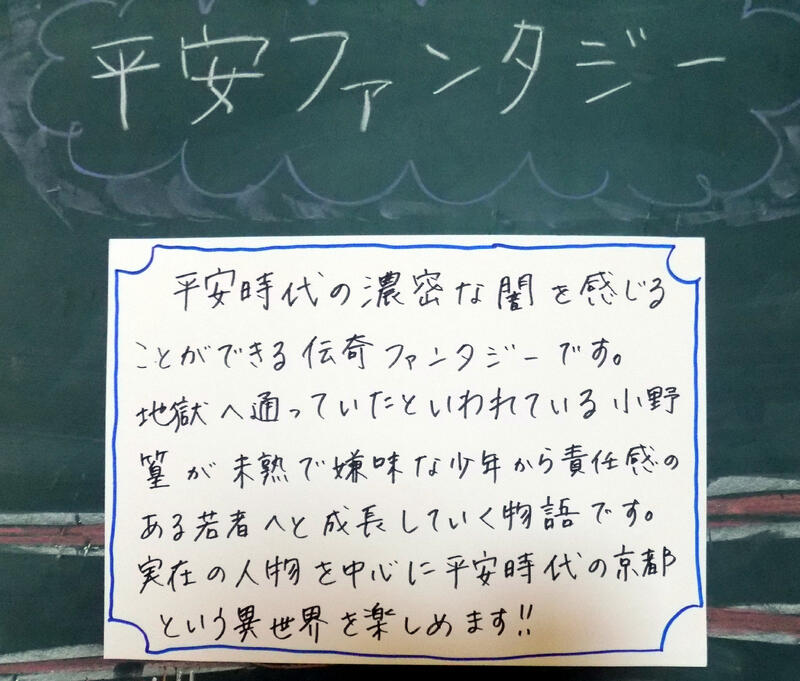 平安ファンタジー
平安時代の濃密な闇を感じる
ことができる伝奇ファンタジーです。
地獄へ通っていたといわれている小野
篁が未熟で嫌味な少年から責任感の
ある若者へと成長していく物語です。
実在の人物を中心に平安時代の京都
という異世界を楽しめます!!